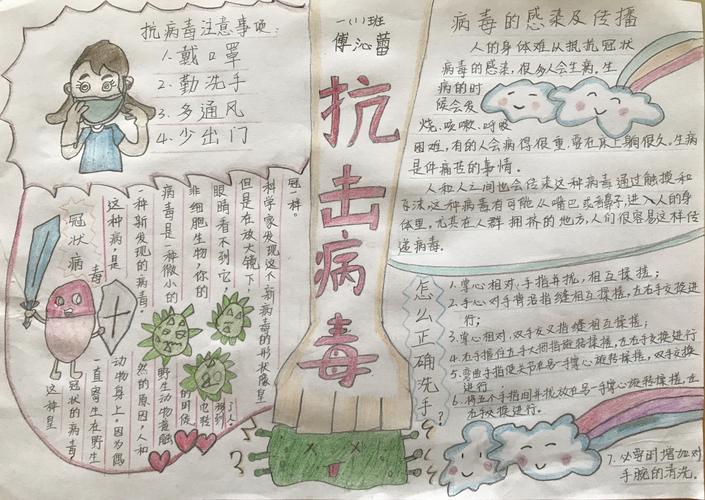 抗病毒注意事项:
1.戴口罩
2.勤洗手
3.多通风
4.少出门
一(1)班
傅沁蕾
抗击病毒
冠状病毒
这种病,是
一种新发现的病毒。
病毒是一种微小的
非细胞生物,你的
眼睛看不到它,
但是在放大镜下,
科学家发现这个新病毒的形状像皇
冠一样。
这种皇
冠状的病毒,
一直寄生在野生
动物身上,因为偶
然的原因,人和
野生动物接触
的时候
了人。
病毒的感染及传播
人的身体难从抵抗冠状
病毒的感染,很多人会生病,生
病的时
候会发
烧、咳嗽、呼吸
困难,有的人会病得很重,要在床上躺很久。生病
是件痛苦的事情。
人和人之间也会传染这种病毒通过触摸和
飞沫,这种病毒有可能从嘴巴或者鼻子,进入人的身
体里,尤其在人群拥挤的地方,人们很容易这样传
递病毒。
怎么正确洗手?
1.掌心相对,手指并拢,相互揉搓;
2.手心对手背沿指缝相互揉搓,左右手交换进
行;
3.掌心相对,双手交叉指缝相互揉搓;
4.右手握住左手大拇指旋转揉搓,左右交换进行
5.弯曲手指使关节在另一手掌心旋转揉搓,双手交换
进行
6.将五个手指间并拢放在另一手掌心旋转揉搓,左
右手交换进行。
7.必要时增加对
手腕的清洗。